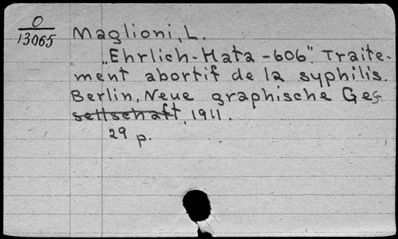 O
13065
Maglioni, L.
„Ehrlich-Hata-606". Traite-
ment abortif de la syphilis.
Berlin, Neue graphische Ges
sellschaft, 1911.
29 p.